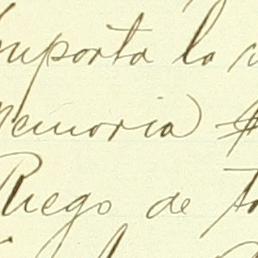 importa la
Memoria
Ruego de